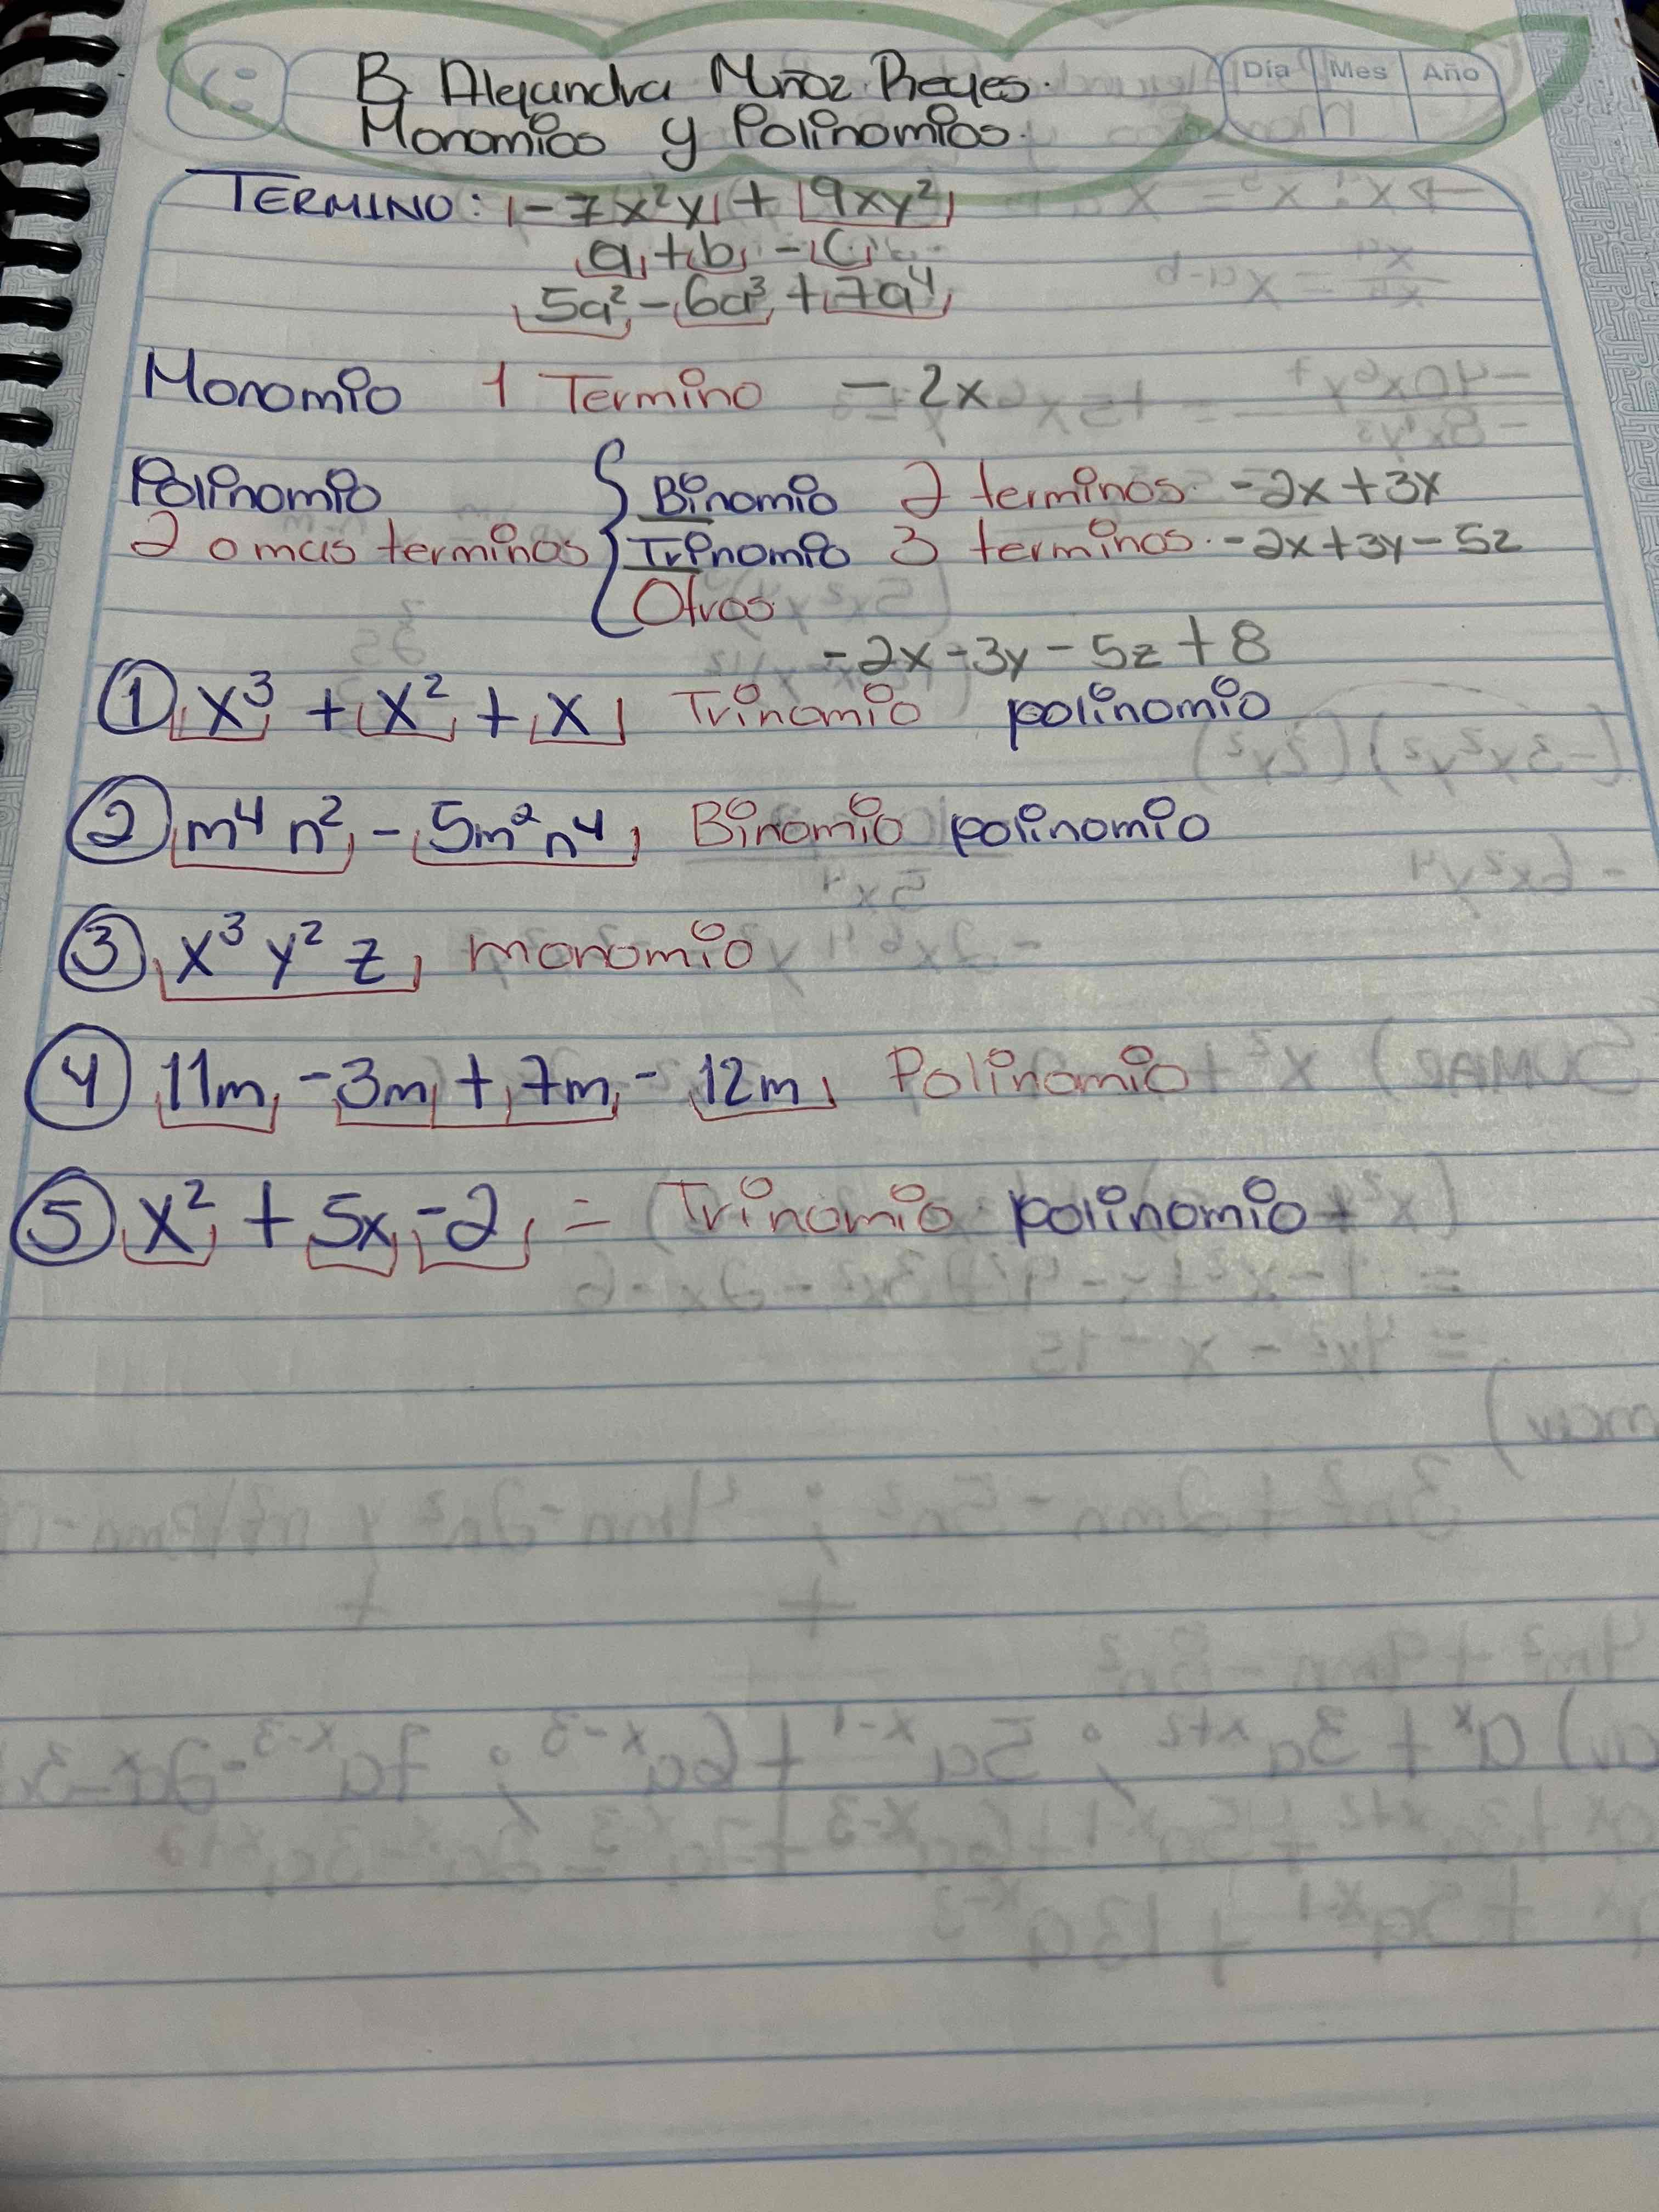 B. Alejandra Muñoz Reyes.
Día Mes Año
Monomios y Polinomios.
TERMINO: -7x²y + 9xy²
a + b - c
5a² - 6a³ + 7a⁴
Monomio 1 Termino -2x
Polinomio Binomio 2 terminos. -2x+3x
2 o mas terminos Trinomio 3 terminos. -2x+3y-5z
Otros
-2x-3y-5z+8
① x³ + x² + x Trinomio polinomio
② m⁴ n² - 5m²n⁴ Binomio polinomio
③ x³ y² z monomio
④ 11m - 3m + 7m - 12m Polinomio
⑤ x² + 5x - 2 = Trinomio polinomio